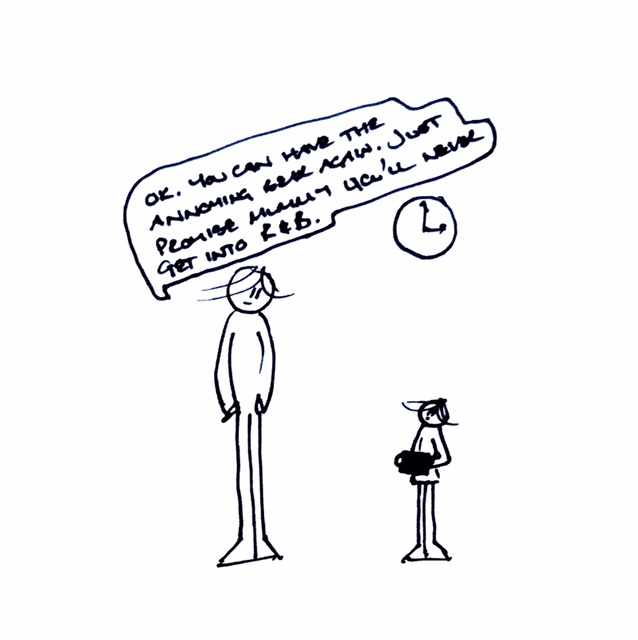 OK. YOU CAN HAVE THE
ANNOYING BEAR AGAIN. JUST
PROMISE MUMMY YOU'LL NEVER
GET INTO R&B.